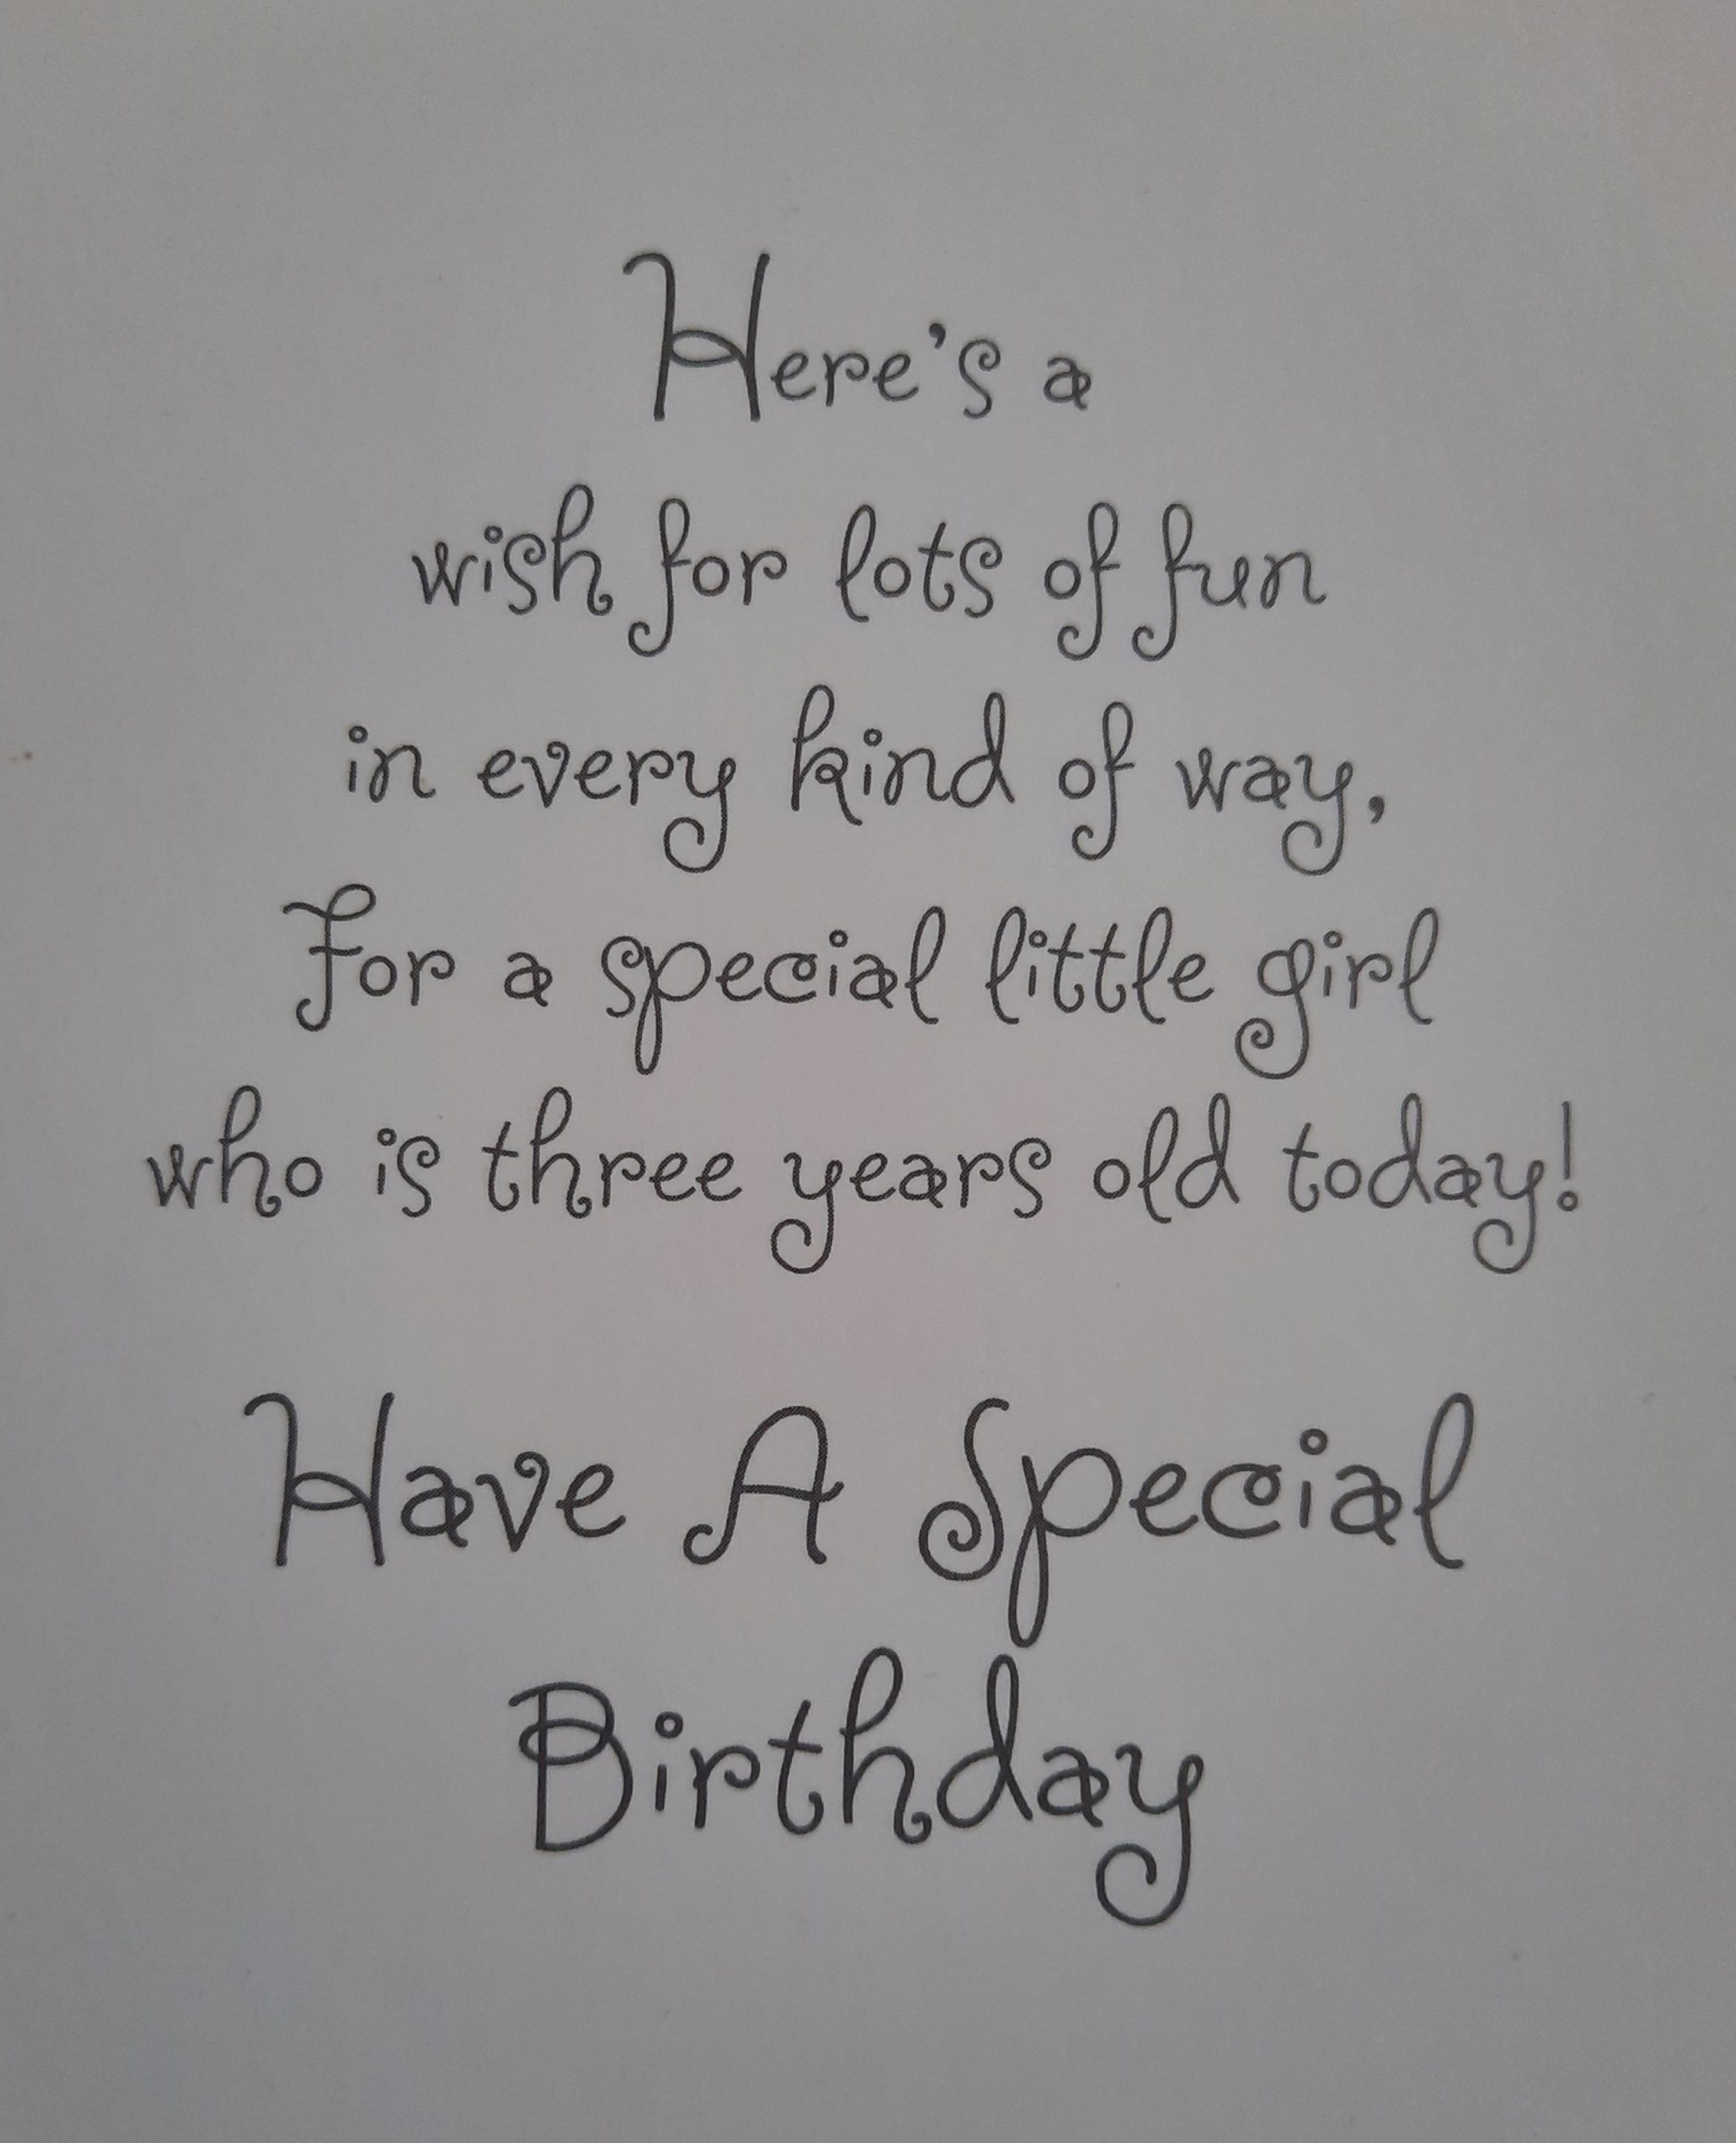 Here's a
wish for lots of fun
in every kind of way,
For a special little girl
who is three years old today!
Have A Special
Birthday